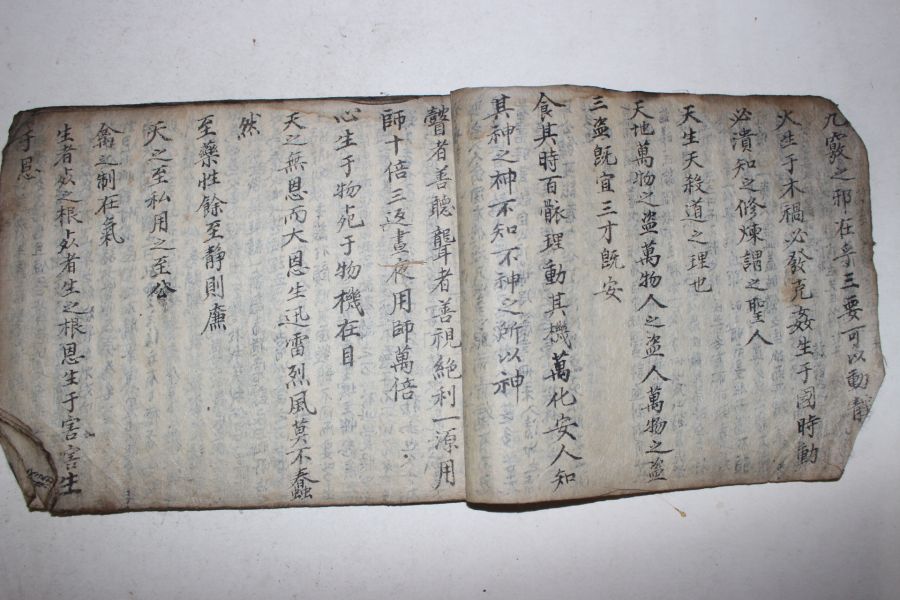 九竅之邪在乎三要可以動靜
火生于木禍必發克姦生于國時動
必潰知之修煉謂之聖人
天生天殺道之理也
天地萬物之盜萬物人之盜人萬物之盜
三盜既宜三才既安
食其時百骸理動其機萬化安人知
其神之神不知不神之所以神
瞽者善聽聾者善視絕利一源用
師十倍三返晝夜用師萬倍
心生于物死于物機在目
天之無恩而大恩生迅雷烈風莫不蠢
然
至藥性餘至靜則廉
天之至私用之至公
禽之制在氣
生者死之根死者生之根恩生于害害生
于恩